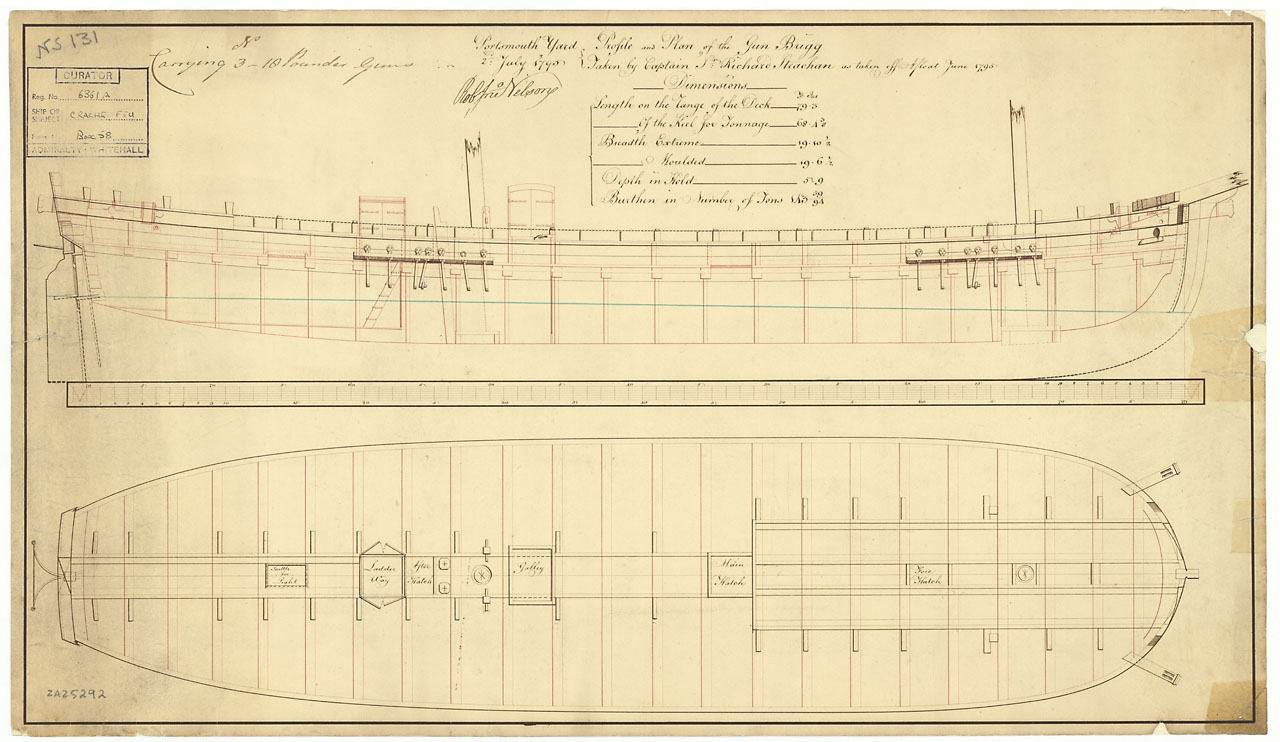 NS 131
No
Carrying 3-18 Pounder Guns
Portsmouth Yard
2d July 1795
Profile and Plan of the Gun Brigg
Taken by Captain Sr Richard Strachan as taken off afloat June 1795
CURATOR
Reg. No. 6361A
SHIP OR SUBJECT CRACHE FEU
Box 58
ADMIRALTY WHITEHALL
Dimensions
Ft Ins
Length on the Range of the Deck 79.3
Of the Keel for Tonnage
Breadth Extreme 19.10 ½
Moulded 19.6 ½
Depth in Hold 5.9
Burthen in Number of Tons
Scuttle for Light
Ladder Way
After Hatch
Galley
Main Hatch
Fore Hatch
ZAZ5292